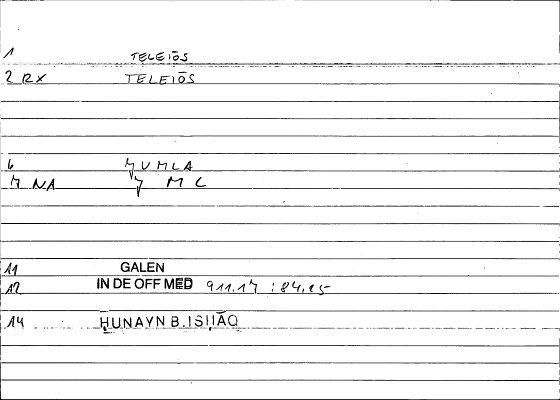 1 TELEIŌS
2 RX TELEIŌS
6 ɈUMLA
7 NA Ɉ M L
11 GALEN
12 IN DE OFF MED 911.17 : 84.15
14 ḤUNAYN B. ISḤĀQ